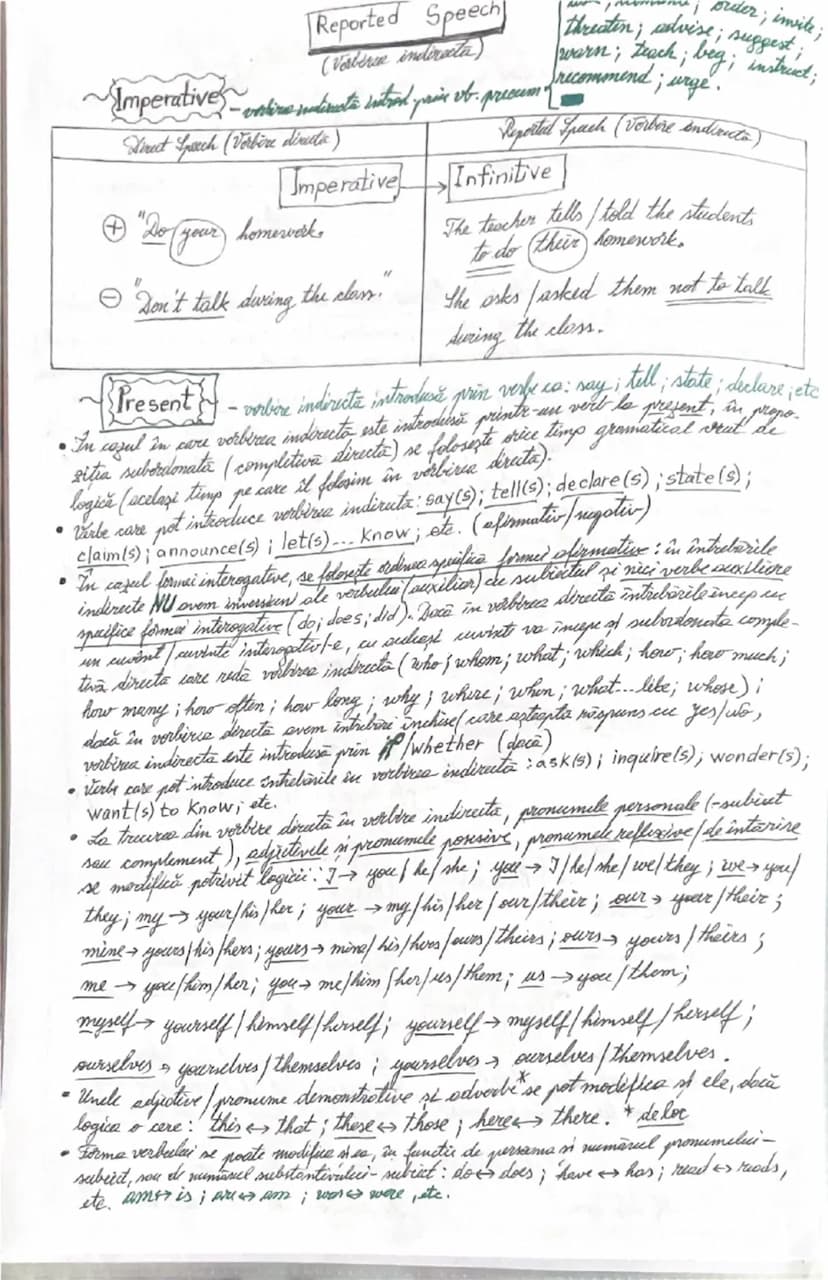 Reported Speech
(Vorbirea indirectă)
order; invite;
threaten; advise; suggest;
warn; teach; beg; instruct;
recommend; urge.
Imperative - vorbirea indirectă introd. prin vb. precum
Direct Speech (Vorbire directă)
Reported Speech (Vorbire indirectă)
Imperative → Infinitive
+ "Do your homework.
The teacher tells/told the students
to do their homework.
- "Don't talk during the class."
She asks/asked them not to talk
during the class.
Present - vorbire indirectă introdusă prin verbe ca: say; tell; state; declare; etc
• În cazul în care vorbirea indirectă este introdusă printr-un verb la prezent, în propo-
ziția subordonată (completivă directă) se folosește orice timp gramatical cerut de
logică (același timp pe care îl folosim în vorbirea directă).
• Verbe care pot introduce vorbirea indirectă: say(s); tell(s); declare(s); state(s);
claim(s); announce(s); let(s)... know; etc. (afirmativ/negativ)
• În cazul formei interogative, se folosește ordinea specifică formei afirmative: în întrebările
indirecte NU avem inversiuni ale verbului (auxiliar) cu subiectul și nici verbe auxiliare
specifice formei interogative (do; does; did). Dacă în vorbirea directă întrebările încep cu
un cuvânt/cuvinte interogativ/-e, cu același cuvânt va începe și subordonata comple-
tivă directă care redă vorbirea indirectă (who; whom; what; which; how; how much;
how many; how often; how long; why; where; when; what...like; whose);
dacă în vorbirea directă avem întrebări închise/care așteaptă răspuns cu Yes/No,
vorbirea indirectă este introdusă prin if/whether (dacă)
• Verbe care pot introduce întrebările în vorbirea indirectă: ask(s); inquire(s); wonder(s);
want(s) to know; etc.
• La trecerea din vorbire directă în vorbire indirectă, pronumele personale (-subiect
sau complement), adjectivele și pronumele posesive, pronumele reflexive/de întărire
se modifică potrivit logicii: I → you/he/she; you → I/he/she/we/they; we → you/
they; my → your/his/her; your → my/his/her/our/their; our → your/their;
mine → yours/his/hers; yours → mine/his/hers/ours/theirs; ours → yours/theirs;
me → you/him/her; you → me/him/her/us/them; us → you/them;
myself → yourself/himself/herself; yourself → myself/himself/herself;
ourselves → yourselves/themselves; yourselves → ourselves/themselves.
• Unele adjective/pronume demonstrative și adverbe* se pot modifica și ele, dacă
logica o cere: this ↔ that; these ↔ those; here ↔ there. * de loc
• Forma verbului se poate modifica și ea, în funcție de persoana și numărul pronumelui-
subiect, sau de numărul substantivului-subiect: do ↔ does; have ↔ has; read ↔ reads,
etc. am ↔ is; are ↔ am; was ↔ were, etc.